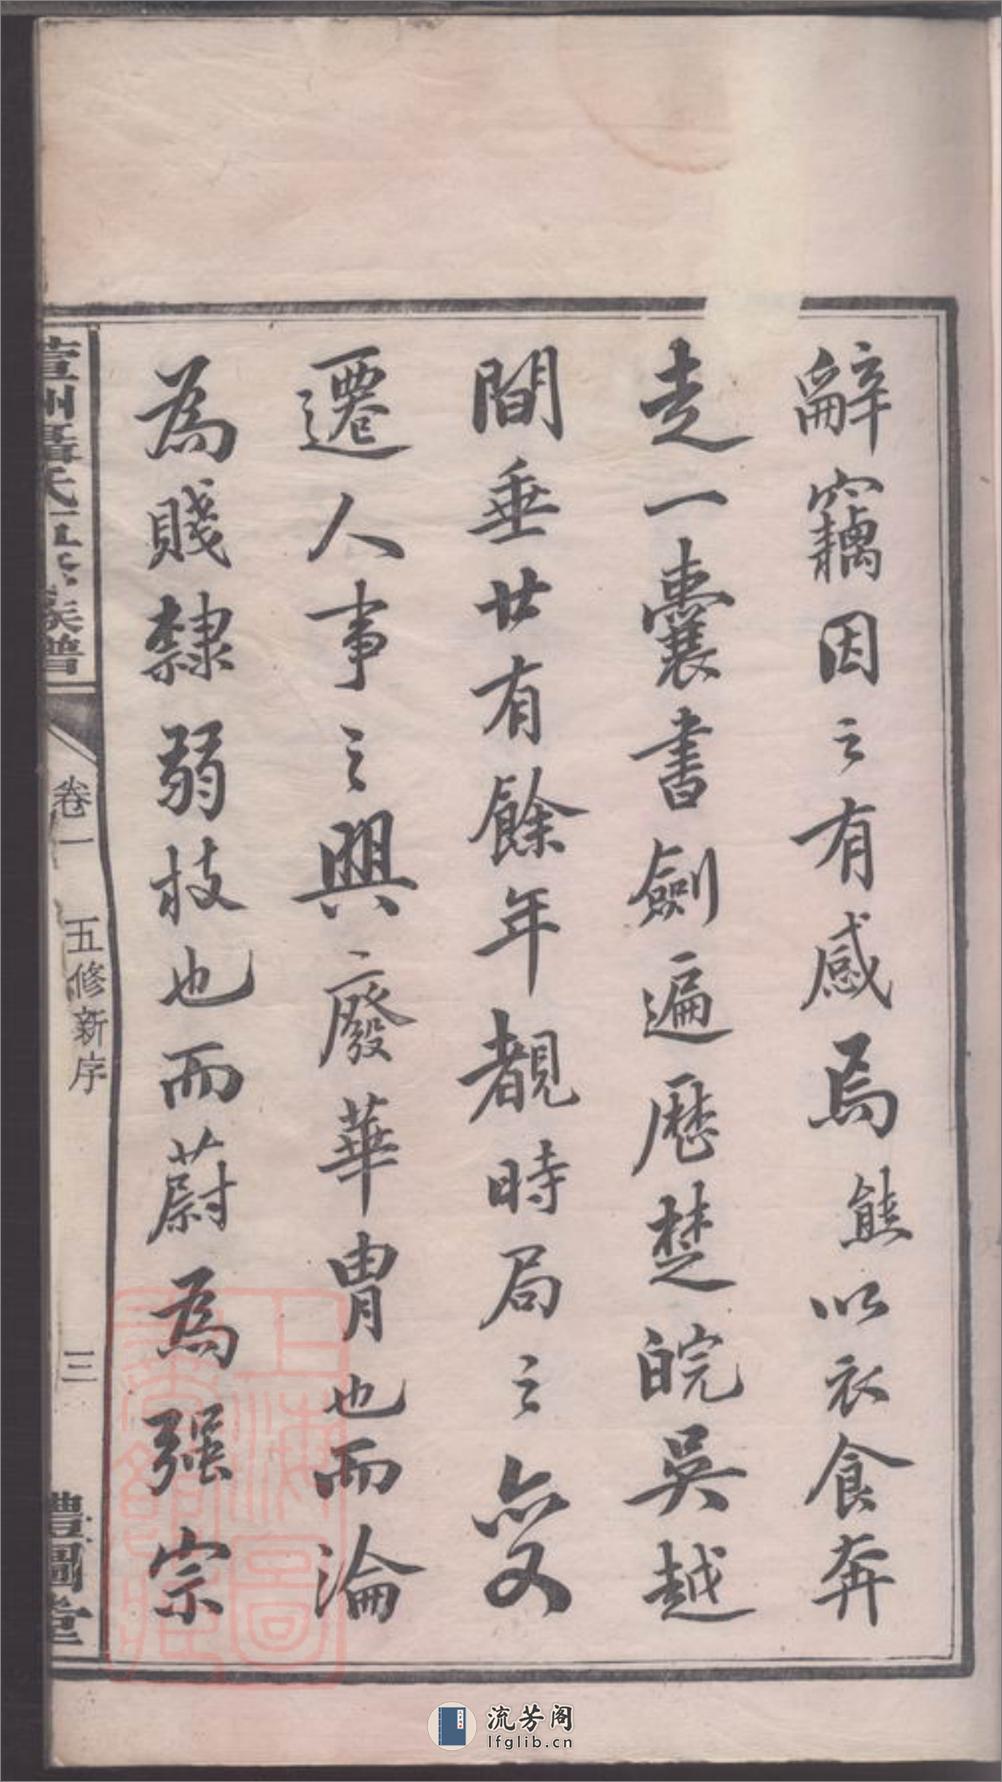 辭竊因之有感焉熊以衣食奔
走一囊書劍遍歷楚皖吳越
間垂廿有餘年覩時局之变
遷人事之興廢華胄也而淪
為賤隸弱枝也而蔚為强宗
氏五修族譜
卷一
五修新序
三
禮圖堂
上海圖
流芳阁
lfglib.cn